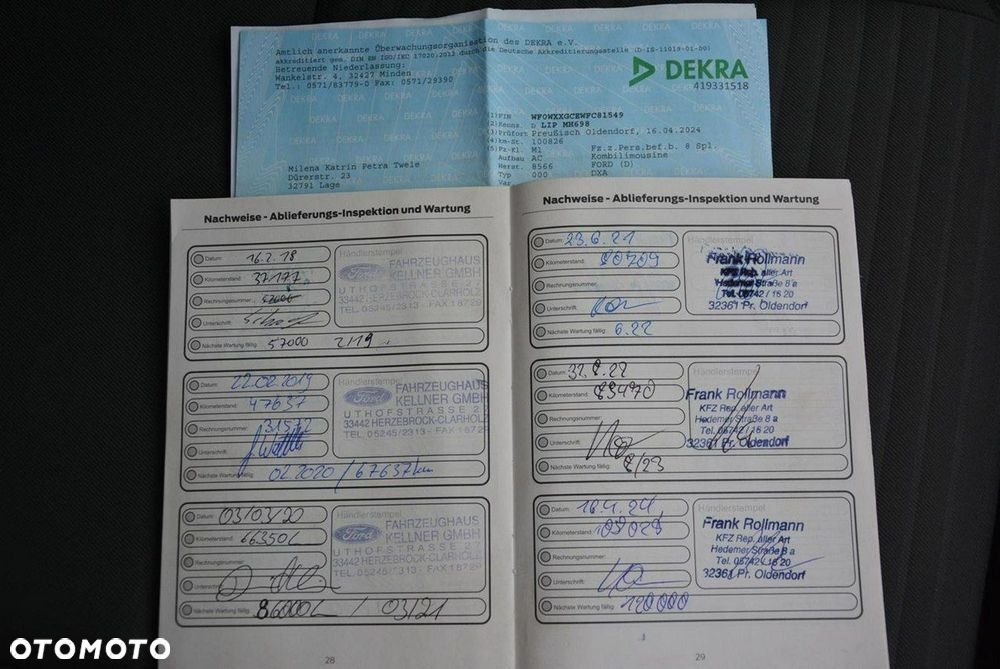 Amtlich anerkannte Überwachungsorganisation des DEKRA e.V.
akkreditiert gem. DIN EN ISO/IEC 17020:2012 durch die Deutsche Akkreditierungsstelle (D-IS-11019-01-00)
Betreuende Niederlassung:
Wankelstr. 4, 32427 Minden
Tel.: 0571/83779-0 Fax: 0571/29390
DEKRA
419331518
(1)FIN WF0WXXGCEWFC81549
(2)Kennz. D LIP MH698
(3)Prüfort Preußisch Oldendorf, 16.04.2024
(4)km-St. 100826
(5)Fz-Kl. M1 Fz.z.Pers.bef.b. 8 Spl.
Aufbau AC Kombilimousine
Herst. 8566 FORD (D)
Typ 000 DXA
Var.
Milena Katrin Petra Twele
Dürerstr. 23
32791 Lage
Nachweise - Ablieferungs-Inspektion und Wartung
Datum: 16.2.18
Händlerstempel
Kilometerstand: 37177
Rechnungsnummer:
Unterschrift:
Ford FAHRZEUGHAUS
KELLNER GMBH
UTHOFSTRASSE 27
33442 HERZEBROCK-CLARHOLZ
TEL. 05245/2313 - FAX 18729
Nächste Wartung fällig: 57000 2/19
Datum: 22.02.2019
Händlerstempel
Kilometerstand: 47637
Rechnungsnummer: 31572
Unterschrift:
Ford FAHRZEUGHAUS
KELLNER GMBH
UTHOFSTRASSE 27
33442 HERZEBROCK-CLARHOLZ
TEL. 05245/2313 - FAX 18729
Nächste Wartung fällig: 02.2020 / 67637 km
Datum: 03/03/20
Händlerstempel
Kilometerstand:
Rechnungsnummer:
Unterschrift:
Ford FAHRZEUGHAUS
KELLNER GMBH
UTHOFSTRASSE 27
33442 HERZEBROCK-CLARHOLZ
TEL. 05245/2313 - FAX 18729
Nächste Wartung fällig: 86000 / 03/21
28
Nachweise - Ablieferungs-Inspektion und Wartung
Datum: 23.6.21
Händlerstempel
Kilometerstand: 80709
Rechnungsnummer:
Unterschrift:
Frank Rollmann
KFZ Rep. aller Art
Hedemer Straße 8 a
Tel. 05742 / 16 20
32361 Pr. Oldendorf
Nächste Wartung fällig: 6.22
Datum:
Händlerstempel
Kilometerstand: 89470
Rechnungsnummer:
Unterschrift:
Frank Rollmann
KFZ Rep. aller Art
Hedemer Straße 8 a
Tel. 05742 / 16 20
32361 Pr. Oldendorf
Nächste Wartung fällig: 8/23
Datum: 16.4.24
Händlerstempel
Kilometerstand:
Rechnungsnummer:
Unterschrift:
Frank Rollmann
KFZ Rep. aller Art
Hedemer Straße 8 a
Tel. 05742 / 16 20
32361 Pr. Oldendorf
Nächste Wartung fällig: 120000
29
OTOMOTO